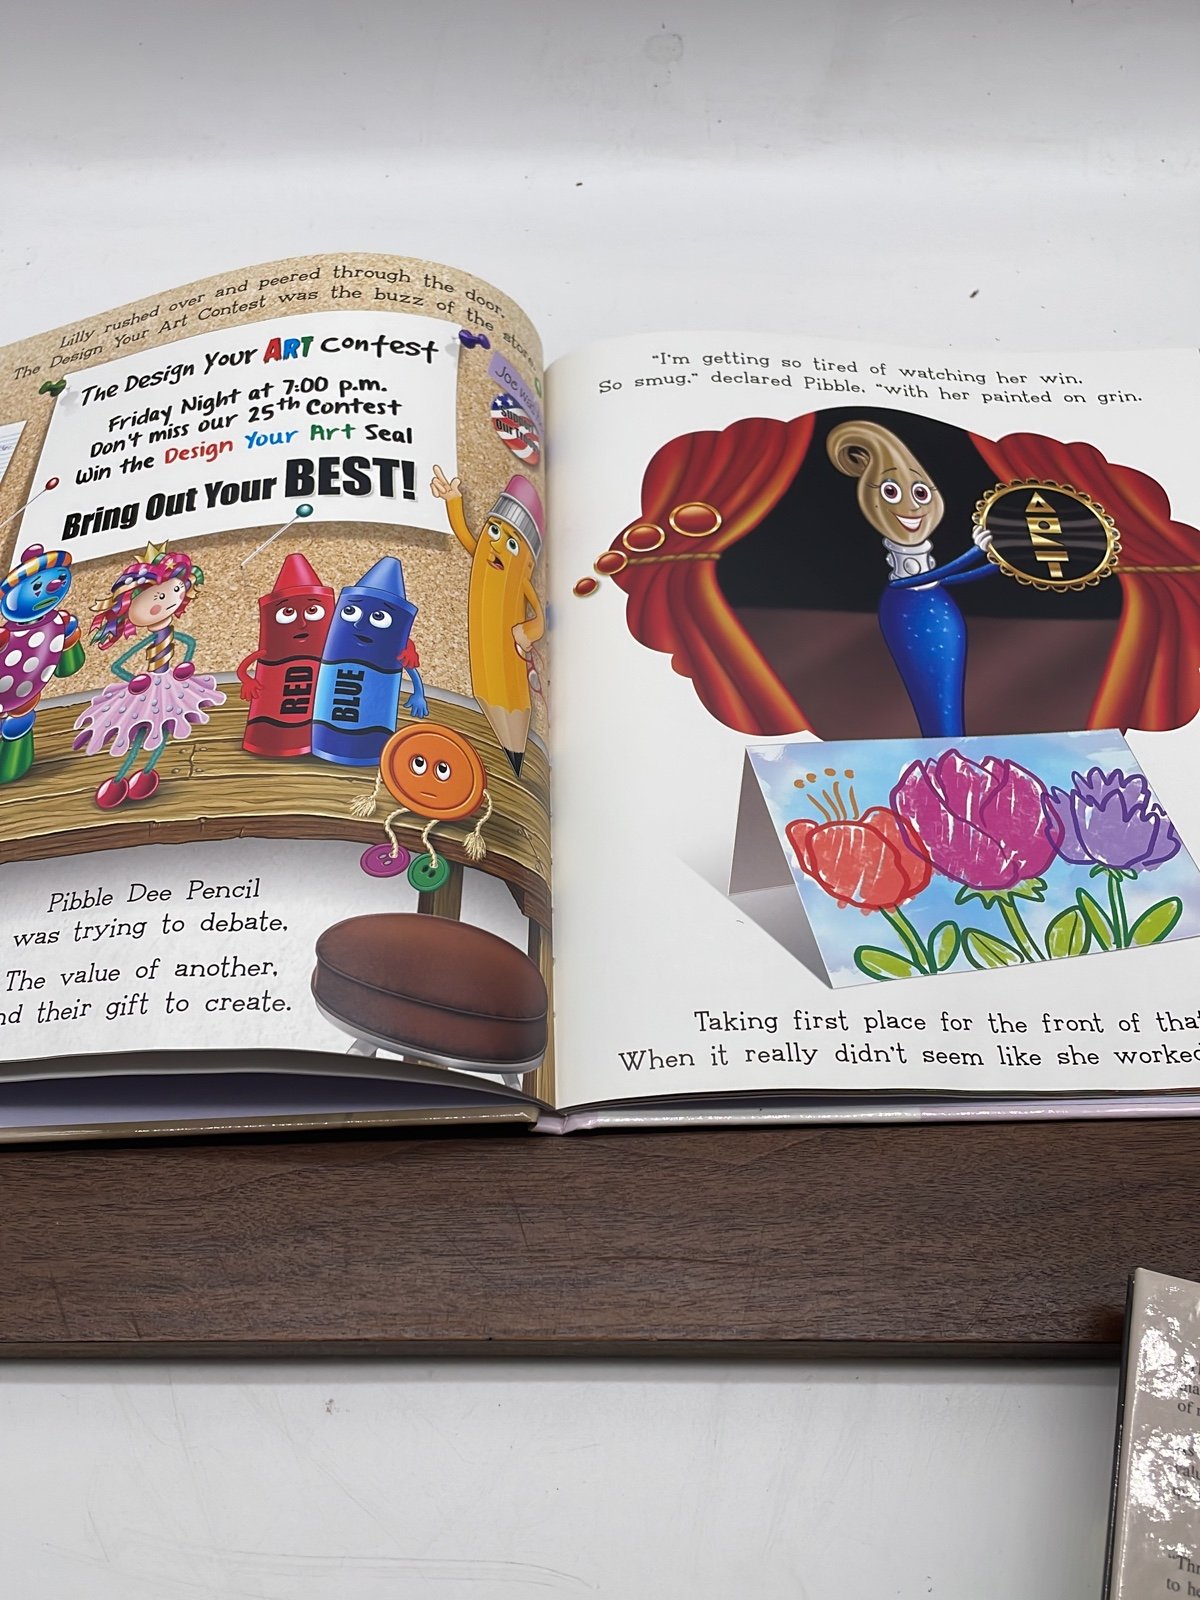 Lilly rushed over and peered through the door,
The Design Your Art Contest was the buzz of the store.
The Design Your ART Contest
Friday Night at 7:00 p.m.
Don't miss our 25th Contest
Win the Design Your Art Seal
Bring Out Your BEST!
Joe
Support
Our
RED
BLUE
Pibble Dee Pencil
was trying to debate,
The value of another,
their gift to create.
"I'm getting so tired of watching her win.
So smug," declared Pibble, "with her painted on grin.
ART
Taking first place for the front of
When it really didn't seem like she worked
of
to